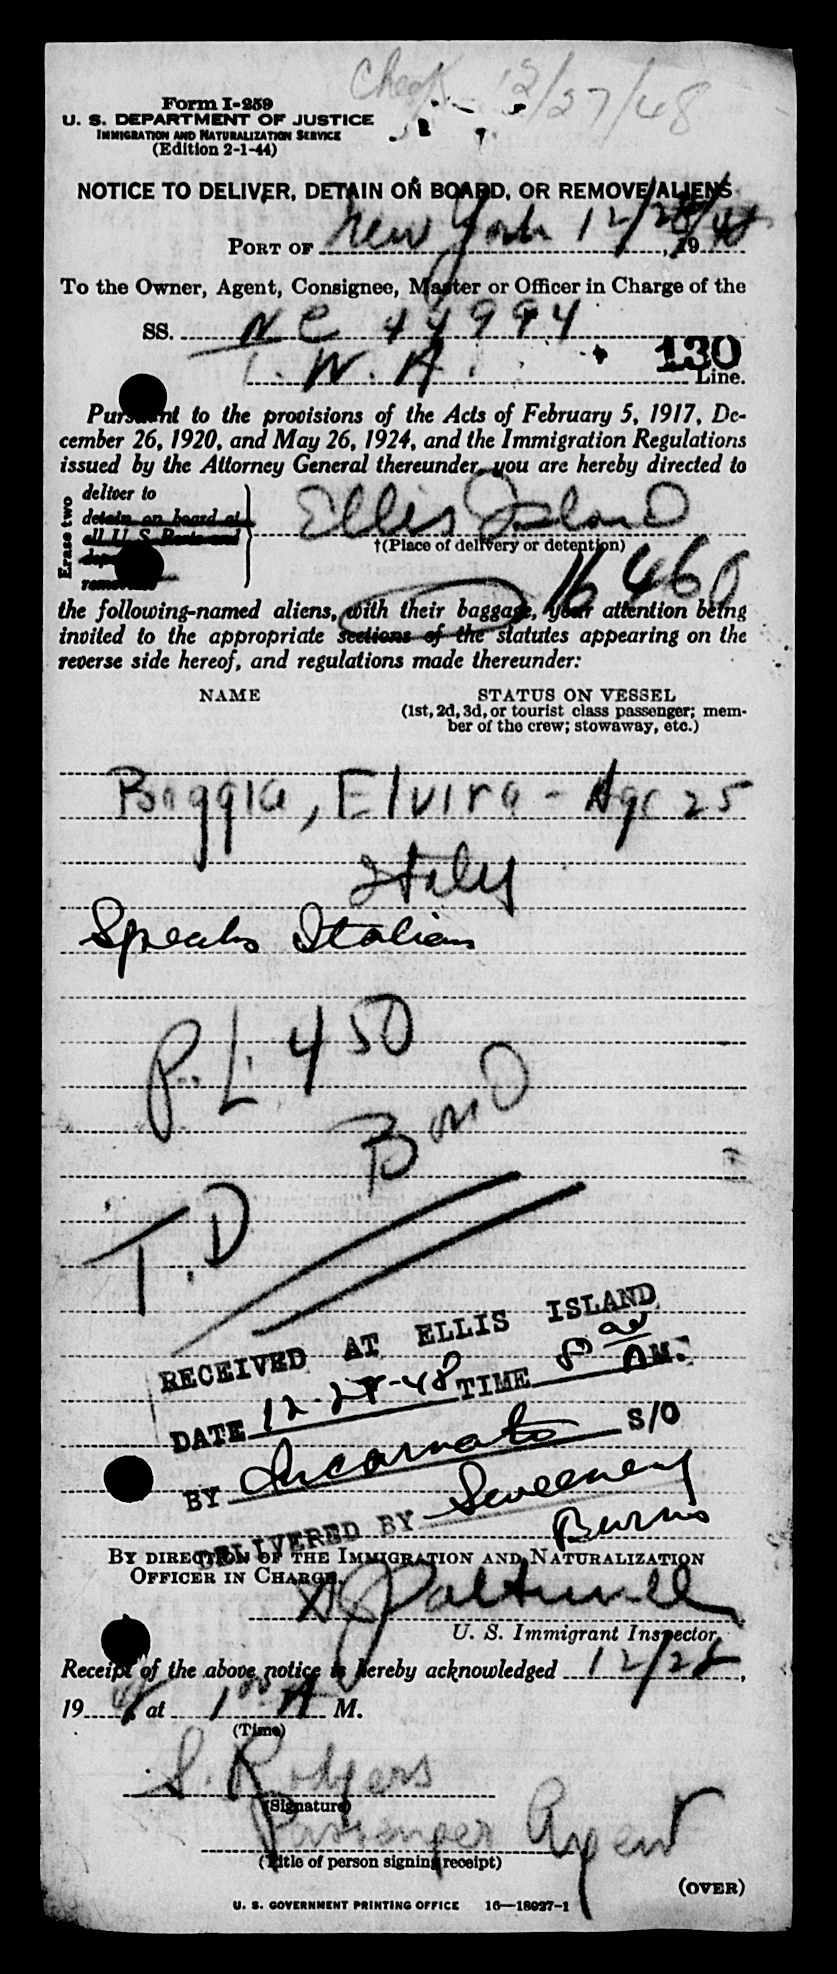 Check 12/27/48
Form I-259
U. S. DEPARTMENT OF JUSTICE
IMMIGRATION AND NATURALIZATION SERVICE
(Edition 2-1-44)
NOTICE TO DELIVER, DETAIN ON BOARD, OR REMOVE ALIENS
PORT OF New York 12/28/48, 19
To the Owner, Agent, Consignee, Master or Officer in Charge of the
SS. NC 44994
T. W. A. 130 Line.
Pursuant to the provisions of the Acts of February 5, 1917, De-
cember 26, 1920, and May 26, 1924, and the Immigration Regulations
issued by the Attorney General thereunder, you are hereby directed to
Erase two
deliver to
detain on board at
all U S Ports and
Ellis Island
†(Place of delivery or detention)
16460
the following-named aliens, with their baggage, your attention being
invited to the appropriate sections of the statutes appearing on the
reverse side hereof, and regulations made thereunder:
NAME STATUS ON VESSEL
(1st, 2d, 3d, or tourist class passenger; mem-
ber of the crew; stowaway, etc.)
Boggia, Elvira - Age 25
Italy
Speaks Italian
P. L. 450
Bond
T. D
RECEIVED AT ELLIS ISLAND
DATE 12-28-48 TIME 8 AM.
BY Incarnato S/O
DELIVERED BY Sweeney
Burns
BY DIRECTION OF THE IMMIGRATION AND NATURALIZATION
OFFICER IN CHARGE.
U. S. Immigrant Inspector.
Receipt of the above notice is hereby acknowledged 12/28,
1948, at 1 00 A M.
(Time)
S. Rodgers
(Signature)
Passenger Agent
(Title of person signing receipt)
(OVER)
U. S. GOVERNMENT PRINTING OFFICE 16—18927-1